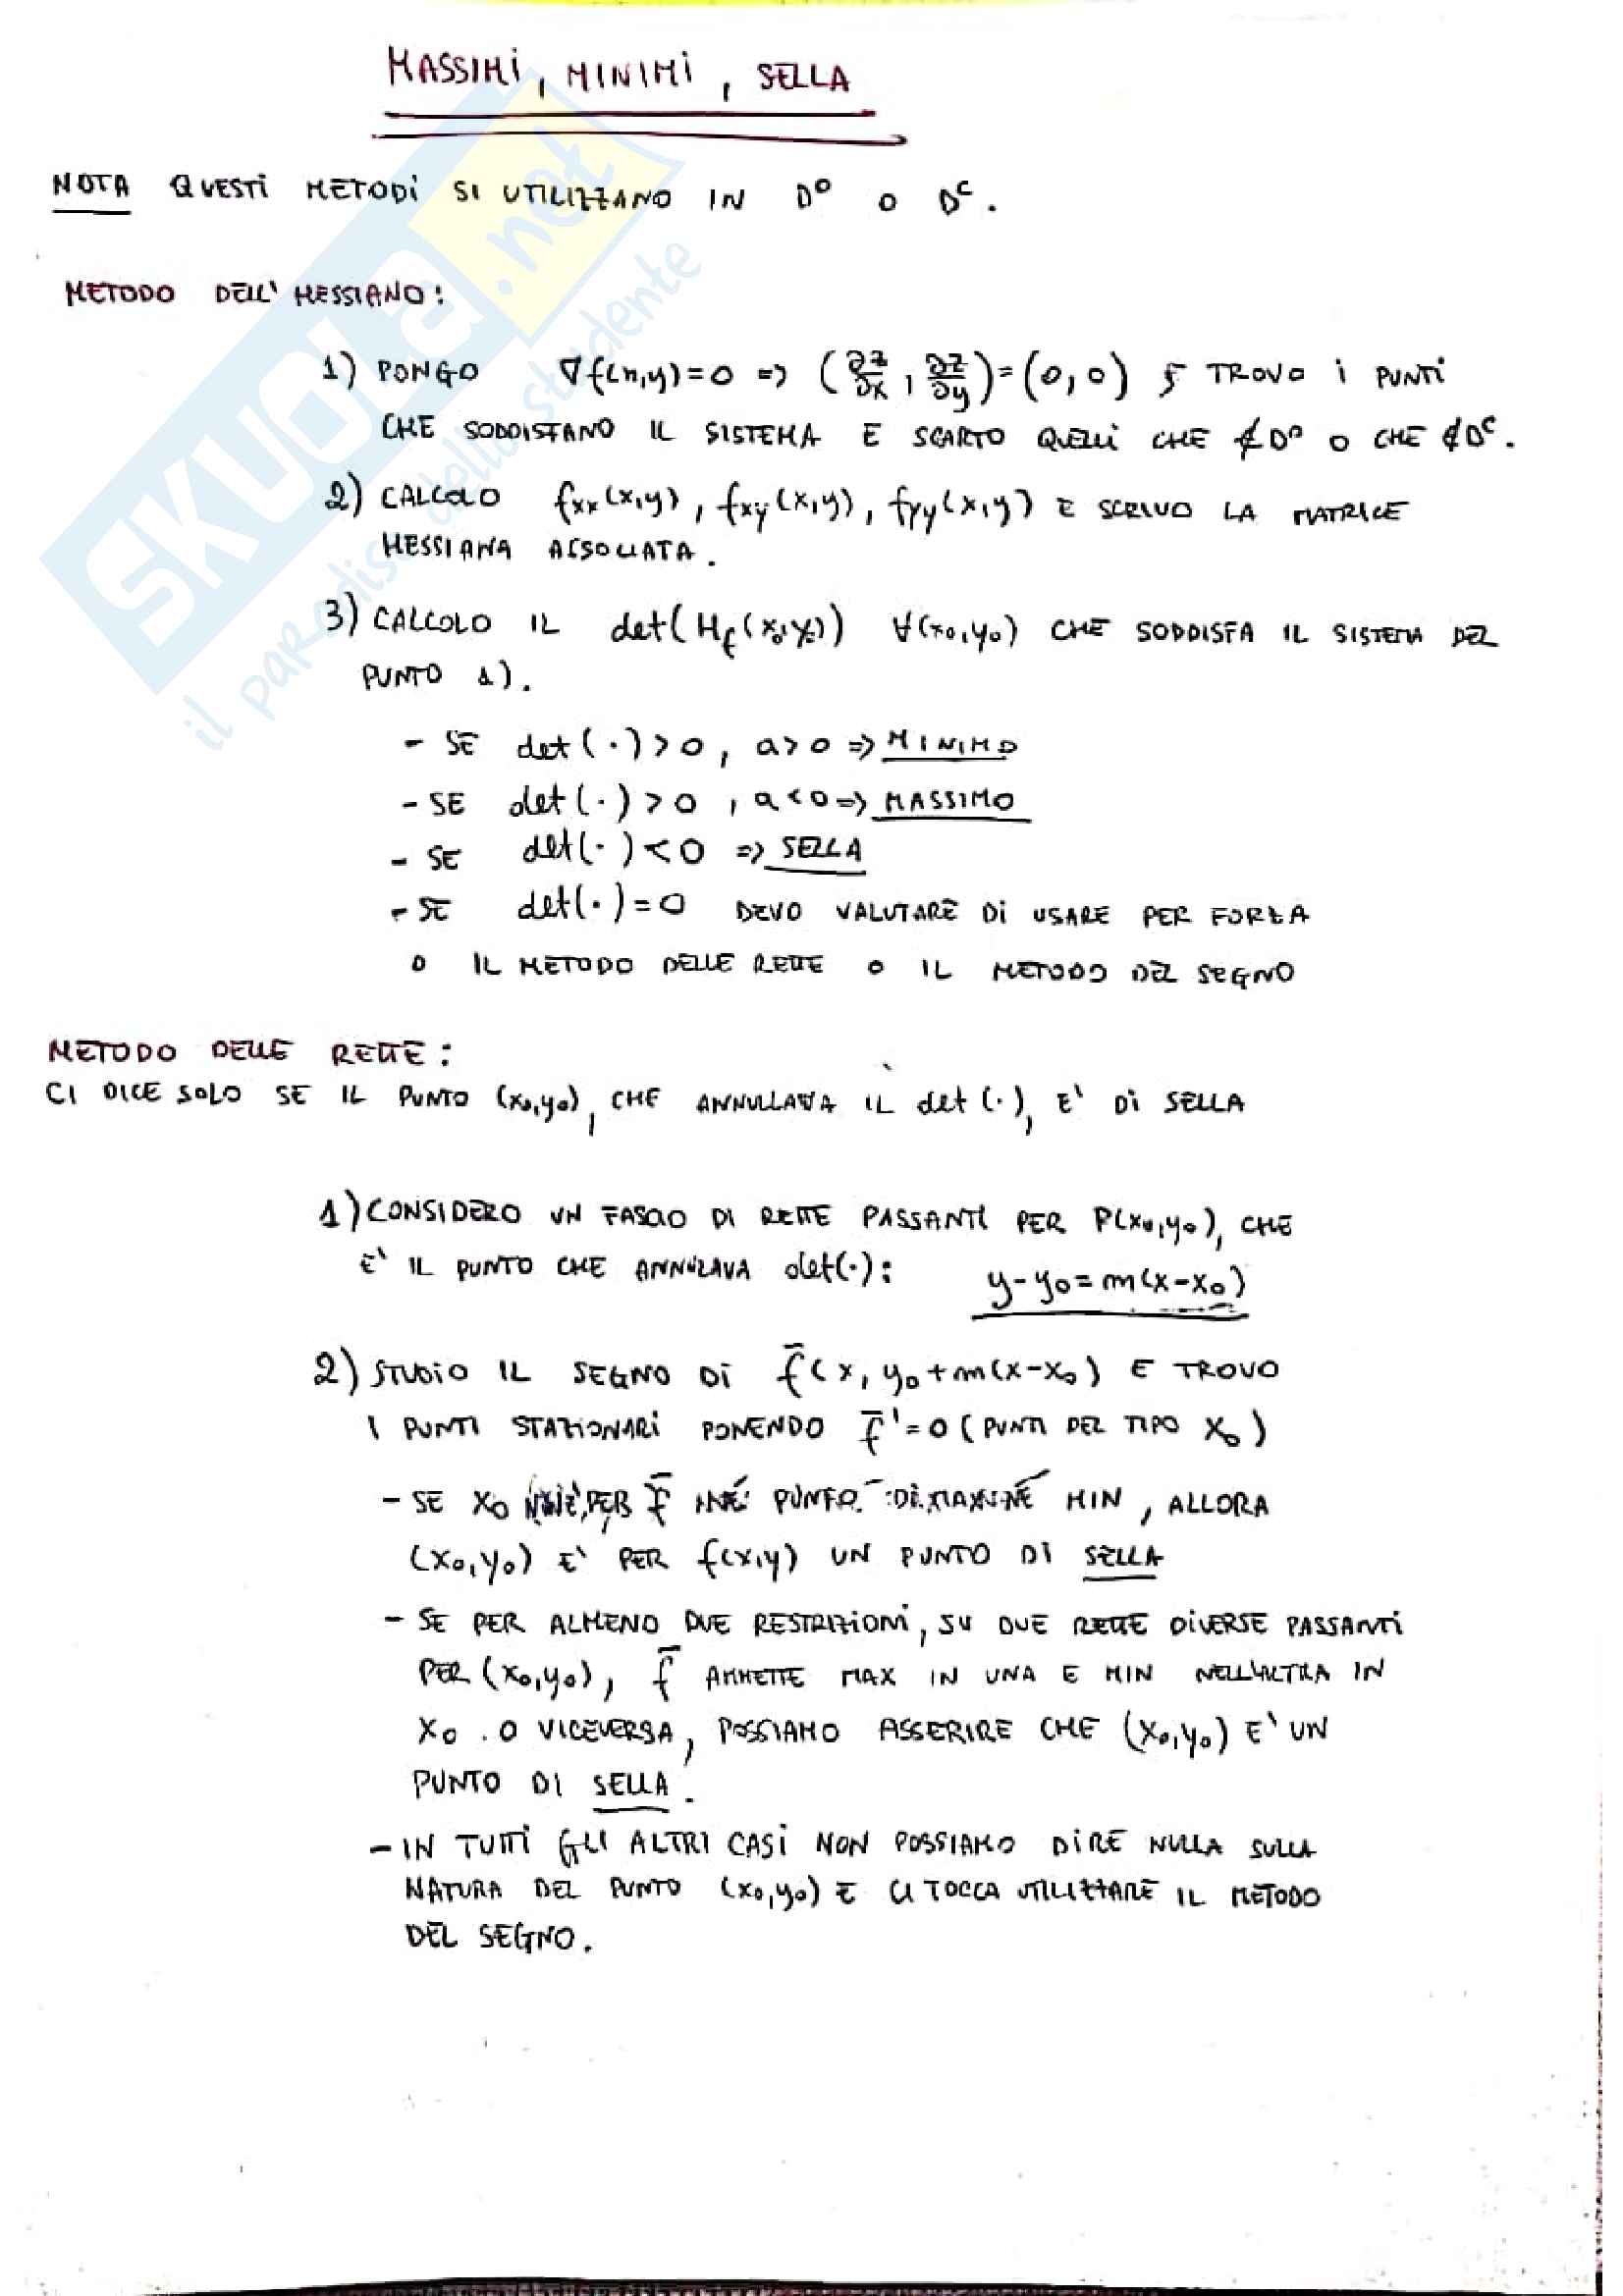 MASSIMI, MINIMI, SELLA
NOTA QUESTI METODI SI UTILIZZANO IN D° O Dᶜ.
METODO DELL' HESSIANO:
1) PONGO ∇f(x,y)=0 => (∂z/∂x, ∂z/∂y)=(0,0) E TROVO I PUNTI
CHE SODDISFANO IL SISTEMA E SCARTO QUELLI CHE ∉D° O CHE ∉Dᶜ.
2) CALCOLO fxx(x,y), fxy(x,y), fyy(x,y) E SCRIVO LA MATRICE
HESSIANA ASSOCIATA.
3) CALCOLO IL det(Hf(x₀,y₀)) ∀(x₀,y₀) CHE SODDISFA IL SISTEMA DEL
PUNTO 1).
- SE det(·)>0, a>0 => MINIMO
- SE det(·)>0, a<0 => MASSIMO
- SE det(·)<0 => SELLA
- SE det(·)=0 DEVO VALUTARE DI USARE PER FORZA
O IL METODO DELLE RETTE O IL METODO DEL SEGNO
METODO DELLE RETTE:
CI DICE SOLO SE IL PUNTO (x₀,y₀), CHE ANNULLAVA IL det(·), E' DI SELLA
1) CONSIDERO UN FASCIO DI RETTE PASSANTI PER P(x₀,y₀), CHE
E' IL PUNTO CHE ANNULAVA det(·): y-y₀=m(x-x₀)
2) STUDIO IL SEGNO DI f̄(x, y₀+m(x-x₀) E TROVO
I PUNTI STAZIONARI PONENDO f̄'=0 (PUNTI DEL TIPO x₀)
- SE x₀ PER f̄ NÉ PUNTO DI MAX NÉ MIN, ALLORA
(x₀,y₀) E' PER f(x,y) UN PUNTO DI SELLA
- SE PER ALMENO DUE RESTRIZIONI, SU DUE RETTE DIVERSE PASSANTI
PER (x₀,y₀), f̄ AMMETTE MAX IN UNA E MIN NELL'ALTRA IN
x₀. O VICEVERSA, POSSIAMO ASSERIRE CHE (x₀,y₀) E' UN
PUNTO DI SELLA.
- IN TUTTI GLI ALTRI CASI NON POSSIAMO DIRE NULLA SULLA
NATURA DEL PUNTO (x₀,y₀) E CI TOCCA UTILIZZARE IL METODO
DEL SEGNO.
SKUOLA.net
il paradiso dello studente